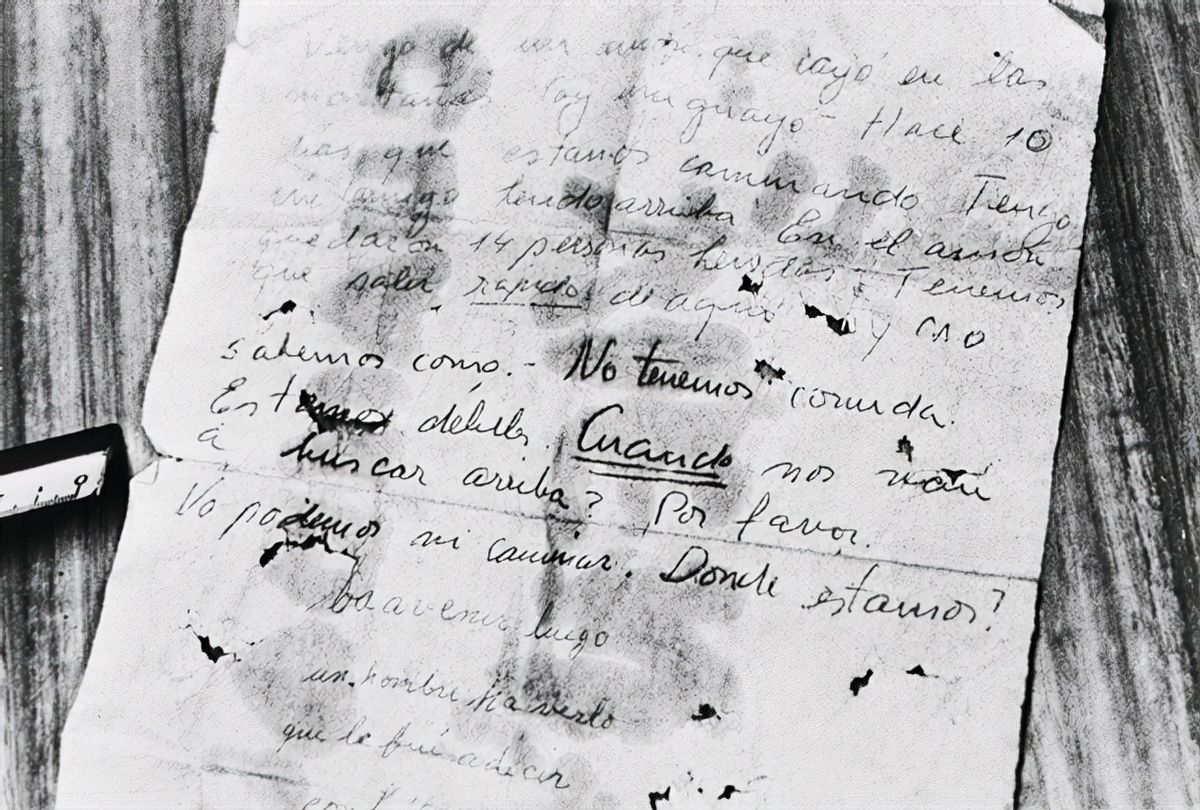 Vengo de un avión que cayó en las
montañas. Soy uruguayo - Hace 10
días que estamos caminando. Tengo
un amigo herido arriba. En el avión
quedaron 14 personas heridas - Tenemos
que salir rápido de aquí y no
sabemos como. - No tenemos comida.
Estamos débiles. Cuando nos van
a buscar arriba? Por favor.
No podemos ni caminar. Donde estamos?
ba a venir luego
un hombre ha verlo
que le fui a decir